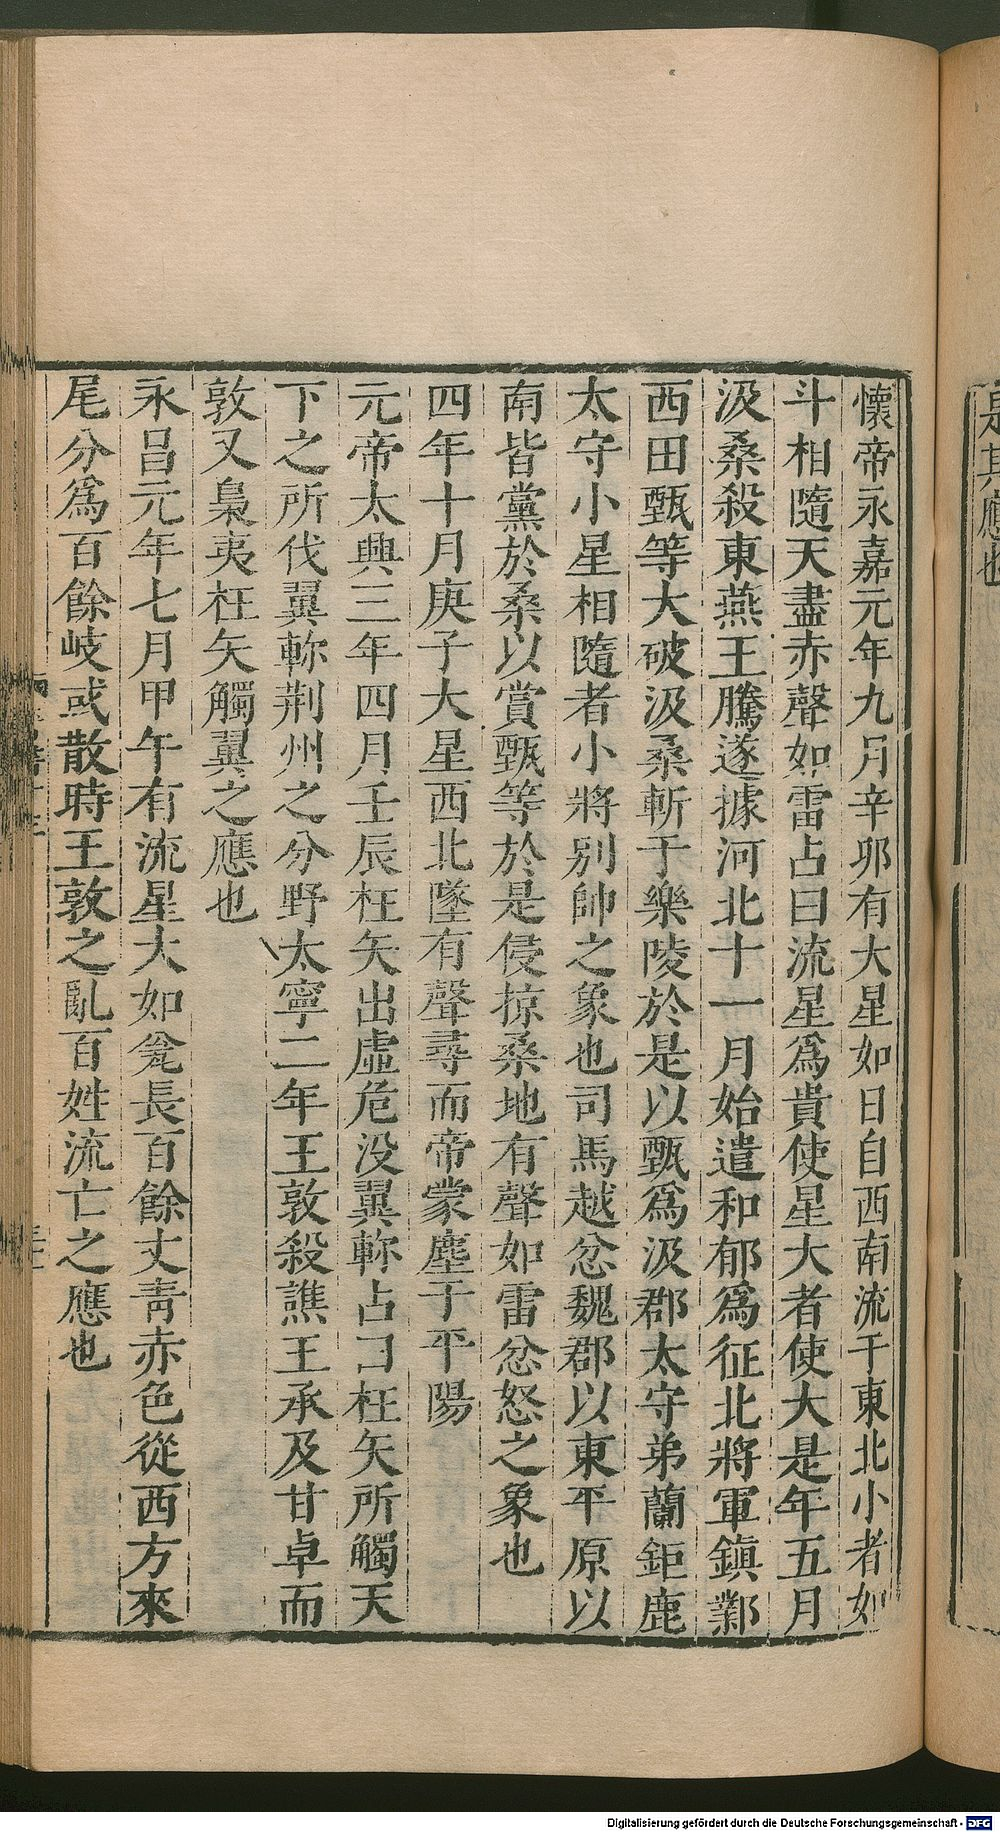 是其應也
懷帝永嘉元年九月辛卯有大星如日自西南流于東北小者如
斗相隨天盡赤聲如雷占曰流星爲貴使星大者使大是年五月
汲桑殺東燕王騰遂據河北十一月始遣和郁爲征北將軍鎮鄴
西田甄等大破汲桑斬于樂陵於是以甄爲汲郡太守弟蘭鉅鹿
太守小星相隨者小將别帥之象也司馬越忿魏郡以東平原以
南皆黨於桑以賞甄等於是侵掠桑地有聲如雷忿怒之象也
四年十月庚子大星西北墜有聲尋而帝蒙塵于平陽
元帝太興三年四月壬辰枉矢出虛危没翼軫占曰枉矢所觸天
下之所伐翼軫荆州之分野太寧二年王敦殺譙王承及甘卓而
敦又梟夷枉矢觸翼之應也
永昌元年七月甲午有流星大如瓮長百餘丈青赤色從西方來
尾分爲百餘岐或散時王敦之亂百姓流亡之應也
Digitalisierung gefördert durch die Deutsche Forschungsgemeinschaft - DFG